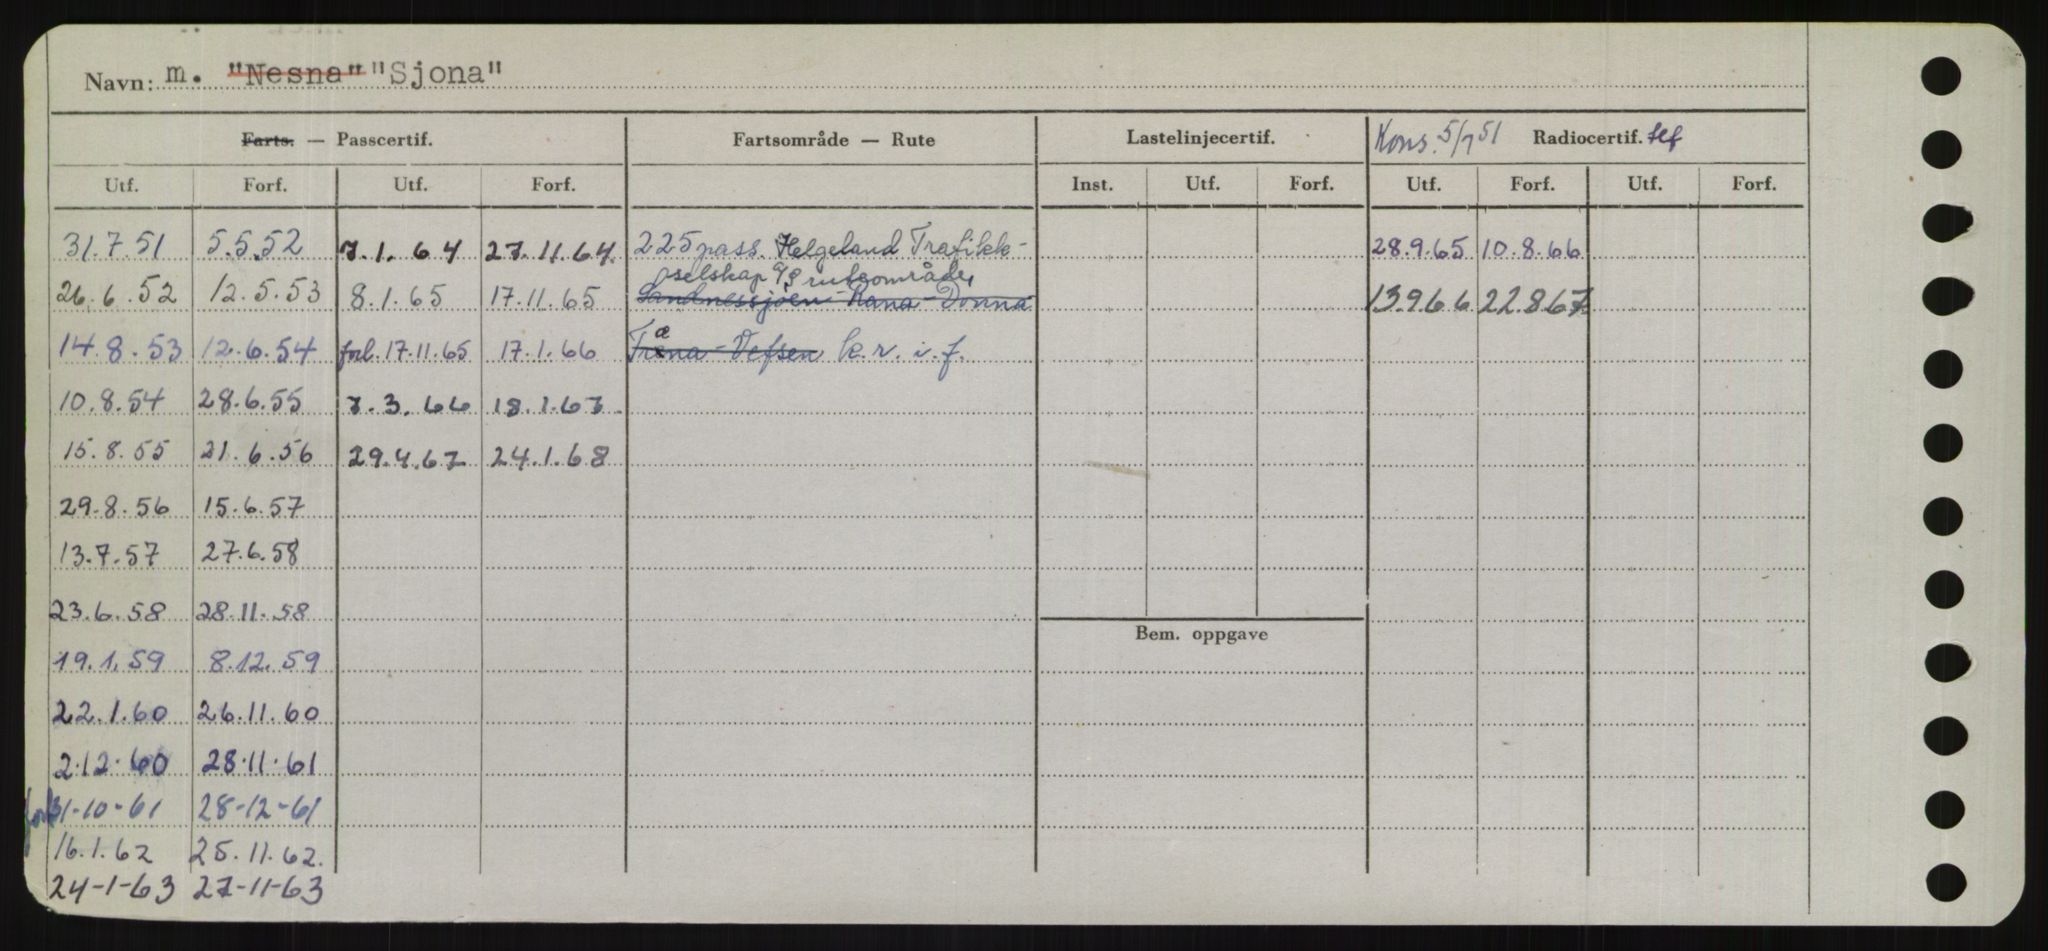 Navn: m. "Nesna" "Sjona"
Farts. — Passcertif. Fartsområde — Rute Lastelinjecertif. Kons. 5/7 51 Radiocertif. tlf
Utf. Forf. Utf. Forf. Inst. Utf. Forf. Utf. Forf. Utf. Forf.
31.7.51 5.5.52 7.1.64 27.11.64. 225 pass. Helgeland Trafikk- 28.9.65 10.8.66
selskap A/S ruteområde,
26.6.52 12.5.53 8.1.65 17.11.65 Sandnessjøen - Rana - Dønna 13.9.66 22.8.67
14.8.53 12.6.54 forl. 17.11.65 17.1.66 Træna - Vefsen k.r. i.f.
10.8.54 28.6.55 7.3.66 18.1.67
15.8.55 21.6.56 29.4.67 24.1.68
29.8.56 15.6.57
13.7.57 27.6.58
23.6.58 28.11.58
Bem. oppgave
19.1.59 8.12.59
22.1.60 26.11.60
2.12.60 28.11.61
forl 31-10-61 28-12-61
16.1.62 25.11.62.
24-1-63 27-11-63